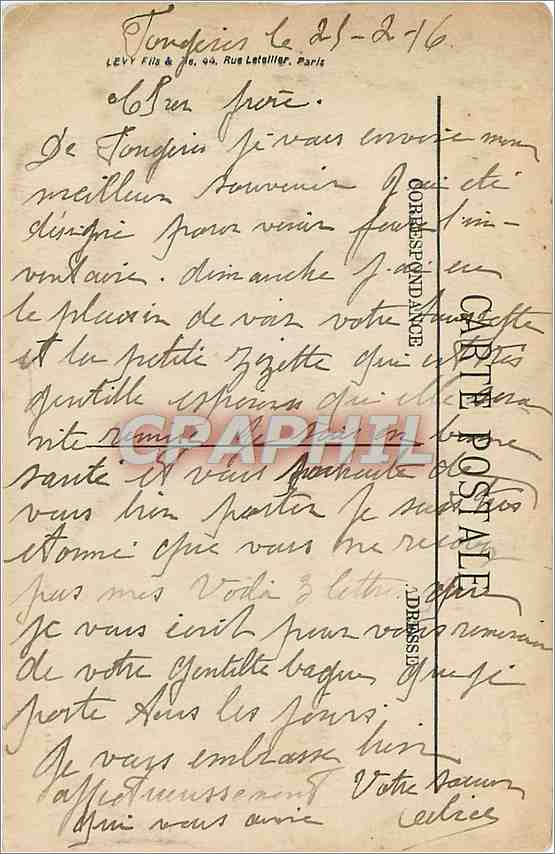 Fougères le 21-2-16
LEVY Fils & Cie, 44, Rue Letellier, Paris
Cher frère.
De Fougères je vous envoie mon
meilleur souvenir qui été
désigné pour venir faire l'in-
ventaire. dimanche j'ai eu
le plaisir de voir votre
et la petite Zizette qui est très
gentille esperons qu'elle sera
vite remise Je suis en bonne
santé et vous souhaite de
vous bien porter je suis très
etonné que vous ne
pas mes Voilà 3 lettres que
je vous écrit pour vous remercier
de votre gentille bague que je
porte tous les jours.
Je vous embrasse bien
affectueusement Votre soeur
qui vous aime
CORRESPONDANCE
CARTE POSTALE
ADRESSE
CRAPHIL